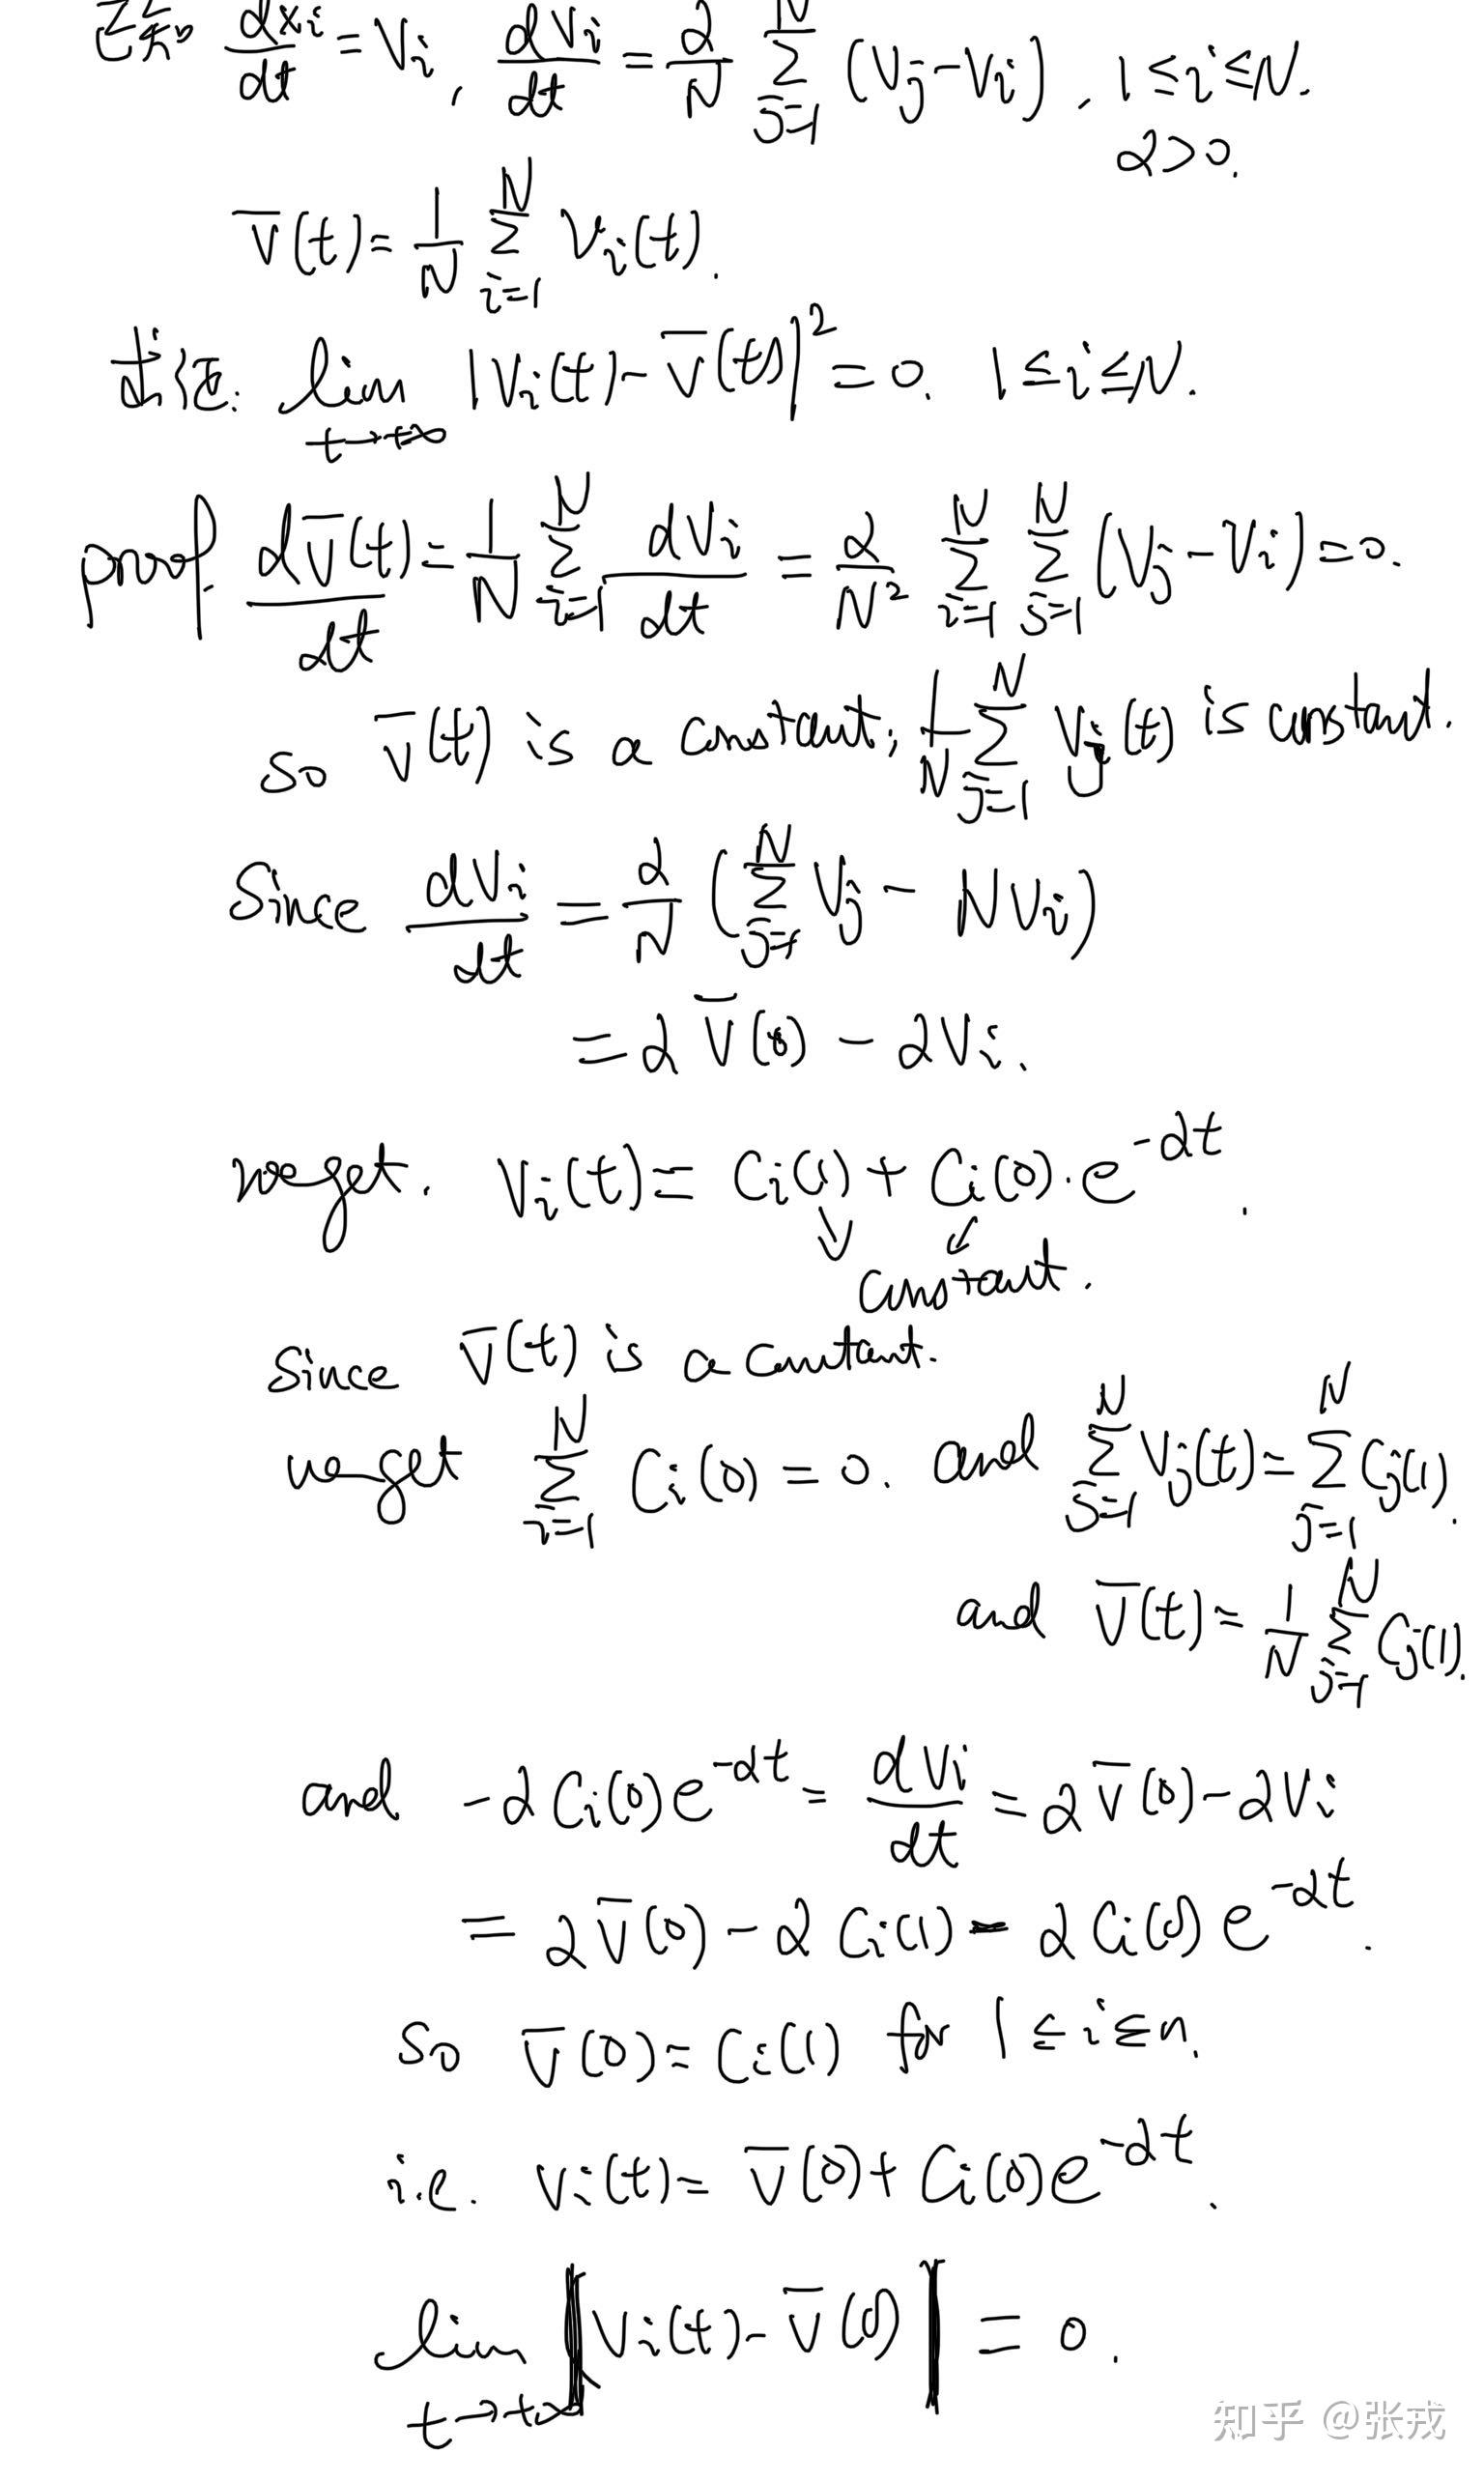 已知 dxi/dt = Vi, dVi/dt = α/N ∑_{j=1}^{N} (Vj - Vi), 1≤i≤N.
α>0.
V̅(t) = 1/N ∑_{i=1}^{N} Vi(t).
求证: lim_{t→+∞} |Vi(t) - V̅(t)|² = 0. 1≤i≤N.
proof. dV̅(t)/dt = 1/N ∑_{i=1}^{N} dVi/dt = α/N² ∑_{i=1}^{N} ∑_{j=1}^{N} (Vj - Vi) = 0.
so V̅(t) is a constant, 1/N ∑_{j=1}^{N} Vj(t) is constant.
Since dVi/dt = α/N (∑_{j=1}^{N} Vj - N Vi)
= α V̅(0) - α Vi.
we get. Vi(t) = Ci(1) + Ci(0)·e^{-αt}.
constant.
since V̅(t) is a constant.
we get ∑_{i=1}^{N} Ci(0) = 0. and ∑_{j=1}^{N} Vj(t) = ∑_{j=1}^{N} Cj(1).
and V̅(t) = 1/N ∑_{j=1}^{N} Cj(1).
and -α Ci(0) e^{-αt} = dVi/dt = α V̅(0) - α Vi
= α V̅(0) - α Ci(1) - α Ci(0) e^{-αt}.
so V̅(0) = Ci(1) for 1≤i≤n.
i.e. Vi(t) = V̅(0) + Ci(0) e^{-αt}.
lim_{t→+∞} |Vi(t) - V̅(0)| = 0.
知乎 @张戎